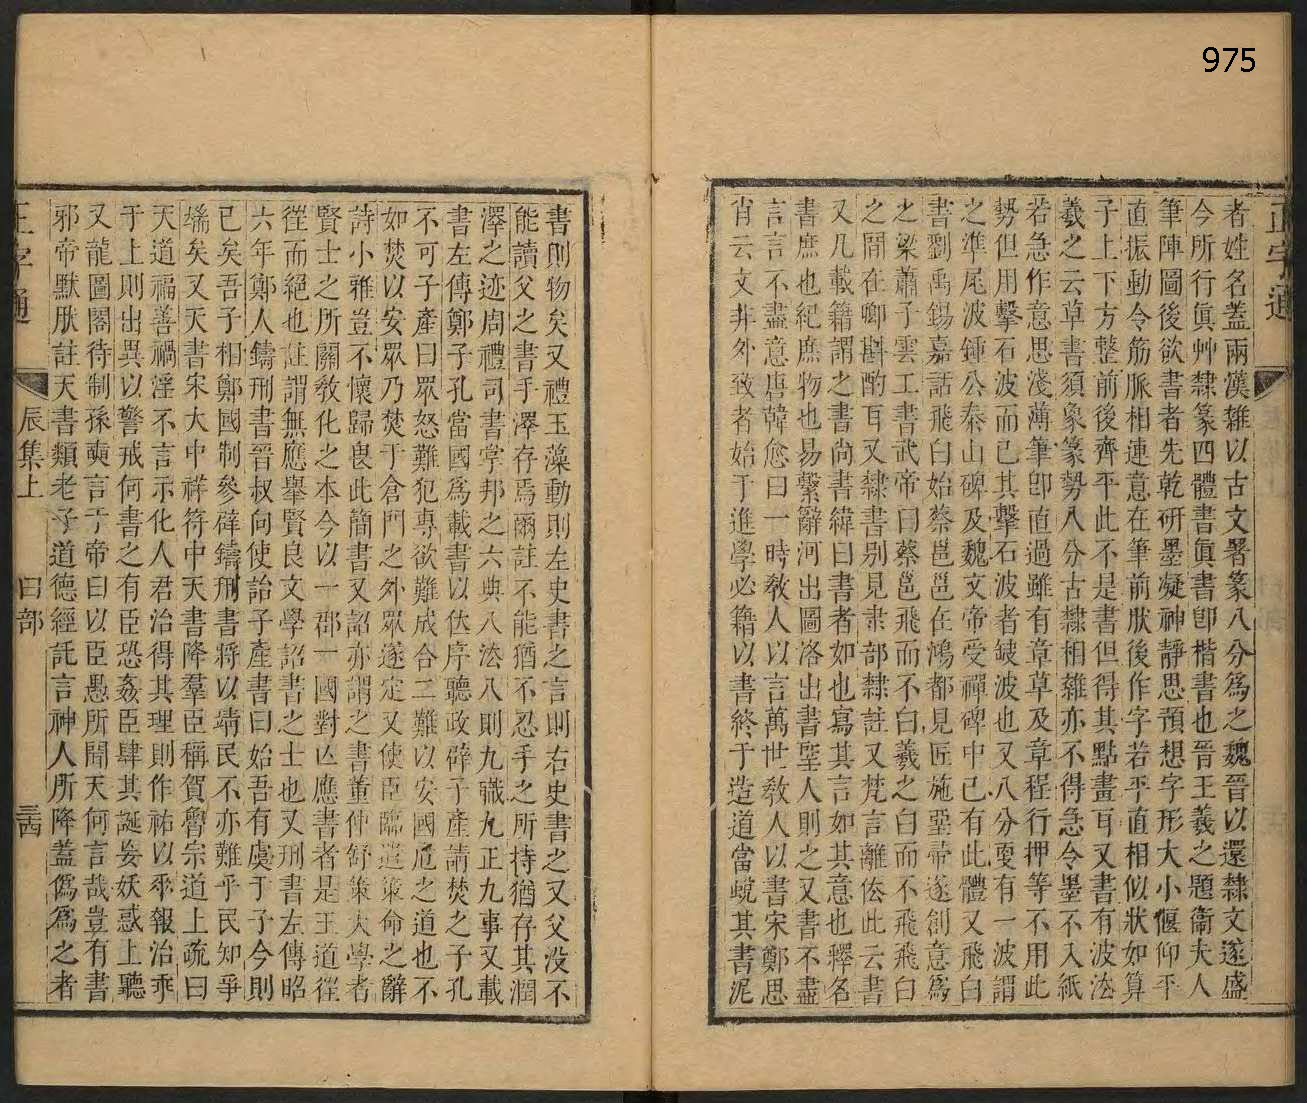 975
正字通
者姓名蓋兩漢雜以古文署篆八分爲之魏晉以還隸文遂盛
今所行眞艸隸篆四體書眞書卽楷書也晉王羲之題衞夫人
筆陣圖後欲書者先乾研墨凝神靜思預想字形大小偃仰平
直振動令筋脈相連意在筆前肰後作字若平直相似狀如算
子上下方整前後齊平此不是書但得其點畫耳又書有波法
羲之云草書須象篆勢八分古隸相雜亦不得急令墨不入紙
若急作意思淺薄筆卽直過雖有章草及章程行押等不用此
勢但用擊石波而已其擊石波者缺波也又八分更有一波謂
之隼尾波鍾公泰山碑及魏文帝受禪碑中已有此體又飛白
書劉禹錫嘉話飛白始蔡邕邕在鴻都見匠施堊帚遂創意爲
之梁蕭子雲工書武帝曰蔡邕飛而不白羲之白而不飛飛白
之閒在卿斟酌耳又隸書别見隶部隸註又梵言離佉此云書
又凡載籍謂之書尚書緯曰書者如也寫其言如其意也釋名
書庶也紀庶物也易繫辭河出圖洛出書聖人則之又書不盡
言言不盡意唐韓愈曰一時敎人以言萬世敎人以書宋鄭思
肖云文非外致者始于進學必籍以書終于造道當蛻其書泥
書則物矣又禮玉藻動則左史書之言則右史書之又父没不
能讀父之書手澤存焉爾註不能猶不忍手之所持猶存其潤
澤之迹周禮司書掌邦之六典八法八則九職九正九事又載
書左傳鄭子孔當國爲載書以位序聽政辟子產請焚之子孔
不可子產曰眾怒難犯專欲難成合二難以安國危之道也不
如焚以安眾乃焚于倉門之外眾遂定又使臣臨遣策命之辭
詩小雅豈不懷歸畏此簡書又詔亦謂之書董仲舒策大學者
賢士之所關敎化之本今以一郡一國對亾應書者是王道徃
徃而絕也註謂無應舉賢良文學詔書之士也又刑書左傳昭
六年鄭人鑄刑書晉叔向使詒子產書曰始吾有虞于子今則
已矣吾子相鄭國制參辟鑄刑書將以靖民不亦難乎民知爭
端矣又天書宋大中祥符中天書降羣臣稱賀魯宗道上疏曰
天道福善禍淫不言示化人君治得其理則作祐以乖報治乖
于上則出異以警戒何書之有臣恐姦臣肆其誕妄妖惑上聽
又龍圖閣待制孫奭言于帝曰以臣愚所聞天何言哉豈有書
邪帝默肰註天書類老子道德經託言神人所降蓋僞爲之者
正字通
辰集上
曰部